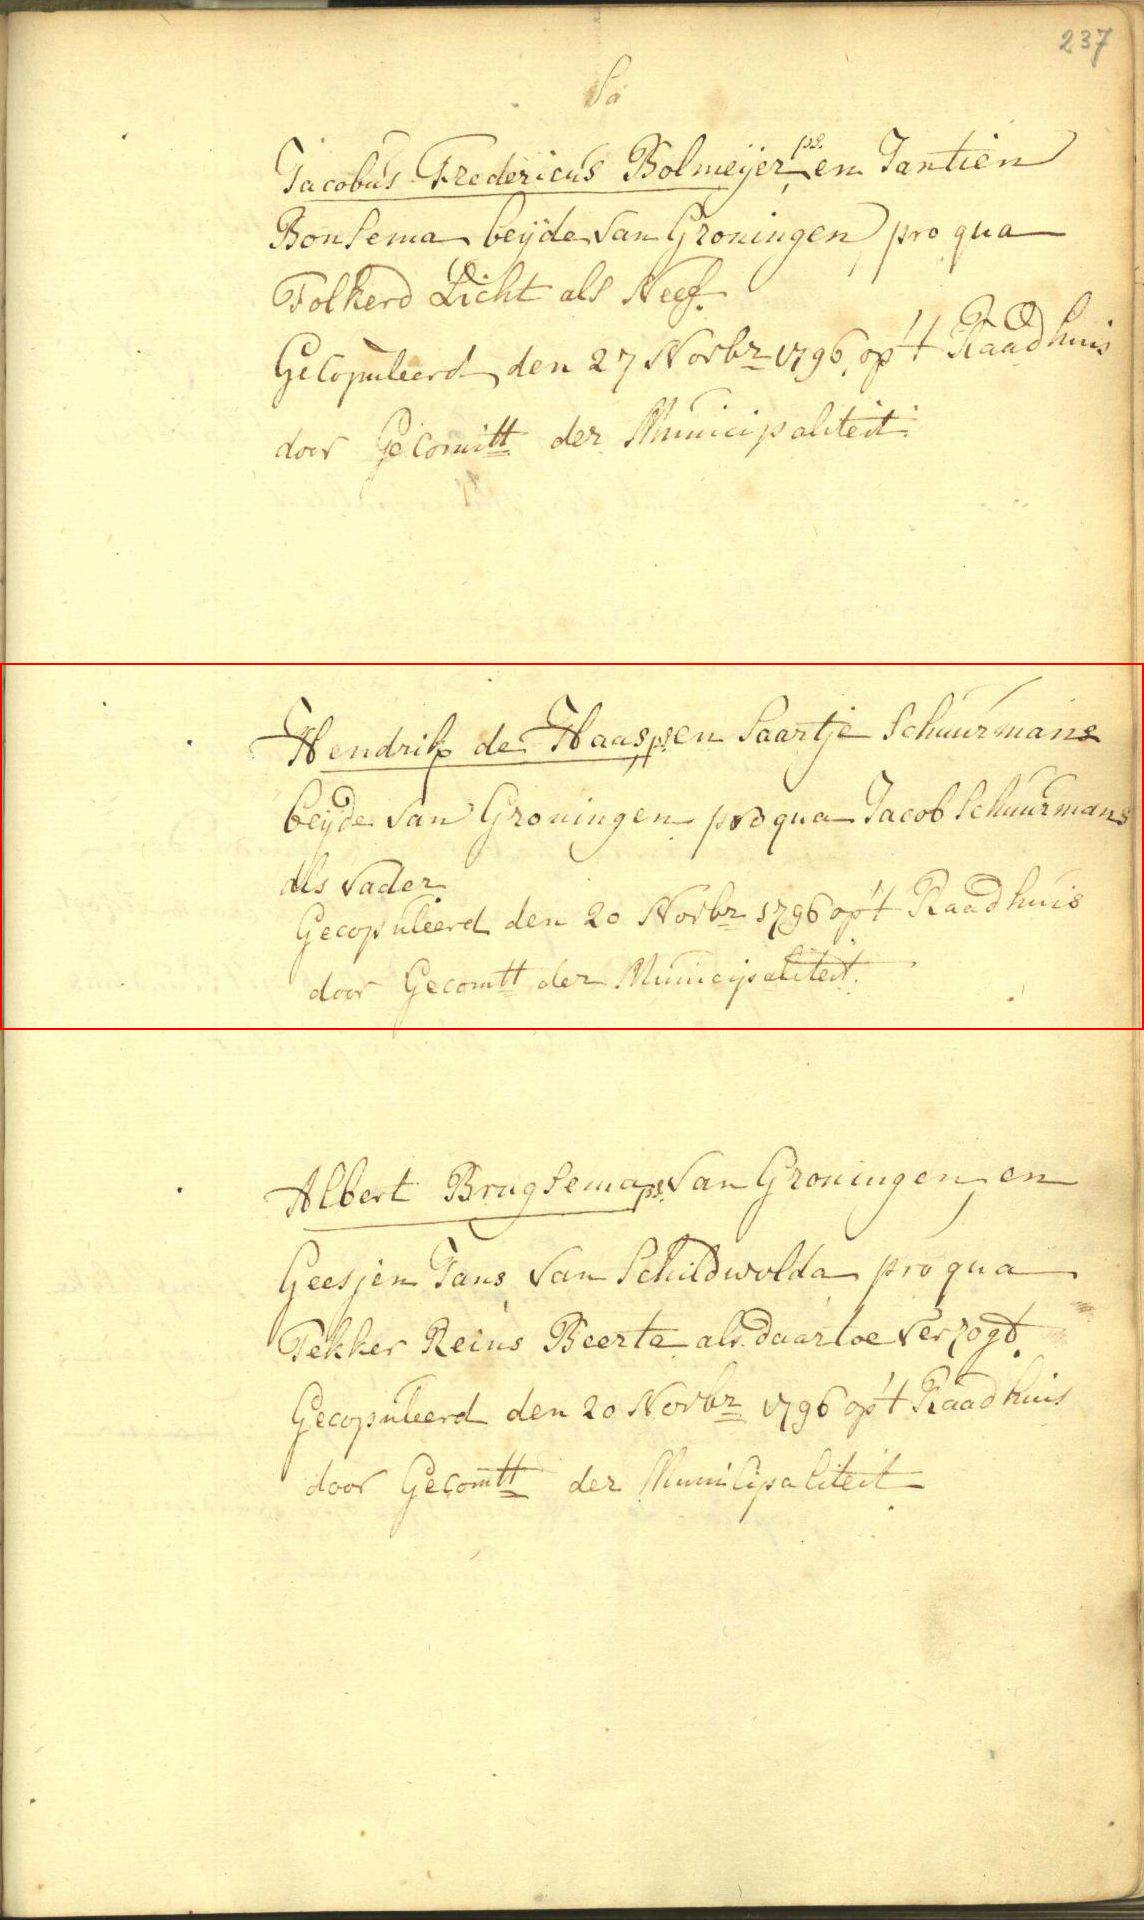 237
Sa
Jacobus Fredericus Bolmeijer ps. en Jantien
Bonsema beyde van Groningen pro qua
Folkerd Licht als Neef.
Gecopuleerd den 27 Novbr 1796 op 't Raadhuis
door Gecomitt der Municipaliteit.
Hendrik de Haas ps. en Saartje Schuurmans
beyde van Groningen pro qua Jacob Schuurmans
als Vader
Gecopuleerd den 20 Novbr 1796 op 't Raadhuis
door Gecomtt der Municipaliteit.
Albert Brugsema ps. van Groningen en
Geesjen Jans van Schildwolda pro qua
Fekker Reins Beerta als daartoe verzogt.
Gecopuleerd den 20 Novbr 1796 op 't Raadhuis
door Gecomtt der Municipaliteit